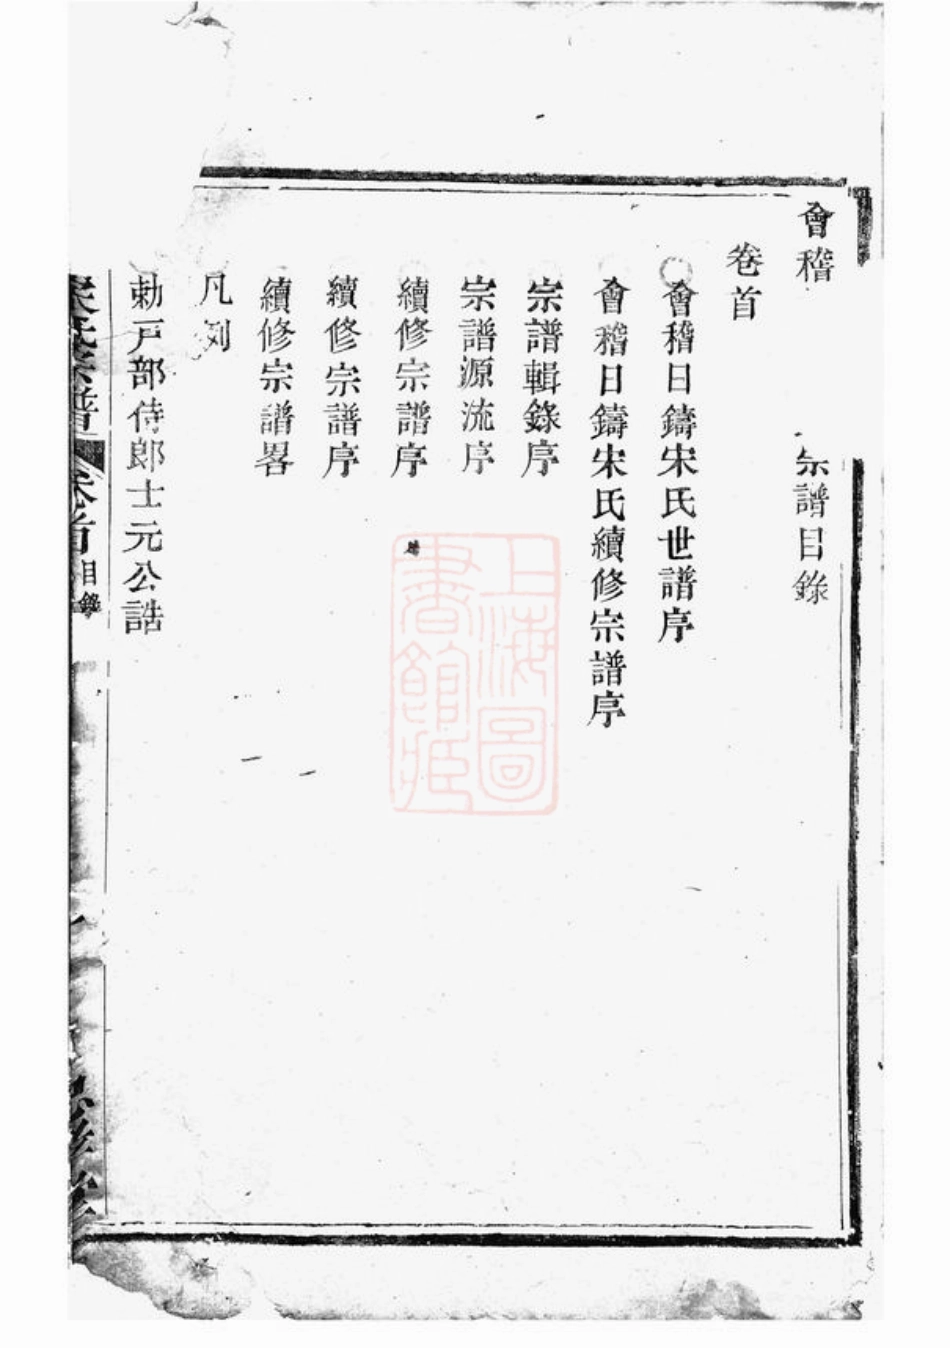 會稽
宗譜目錄
卷首
會稽日鑄宋氏世譜序
會稽日鑄宋氏續修宗譜序
宗譜輯錄序
宗譜源流序
續修宗譜序
續修宗譜序
續修宗譜畧
凡例
勅戶部侍郎士元公誥
宋氏宗譜
卷首
目錄
上海圖
書館藏